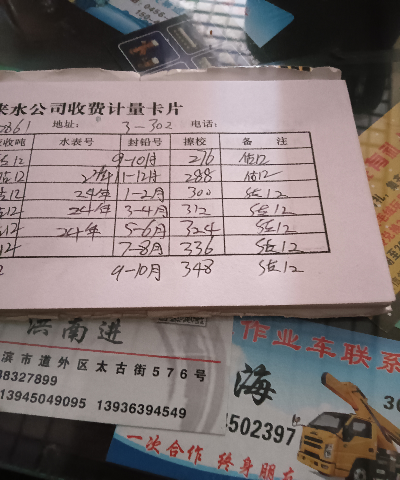 来水公司收费计量卡片
0861 地址: 3-302 电话:
收吨 水表号 封铅号 擦校 备 注
估12 9-10月 276 估12
估12 2年 11-12月 288 估12
估12 24年 1-2月 300 估12
估12 24年 3-4月 312 估12
估12 24年 5-6月 324 估12
12 7-8月 336 估12
2 9-10月 348 估12
洪南进
滨市道外区太古街576号
48327899
13945049095 13936394549
作业车联系
海
4502397
一次合作 终身朋友